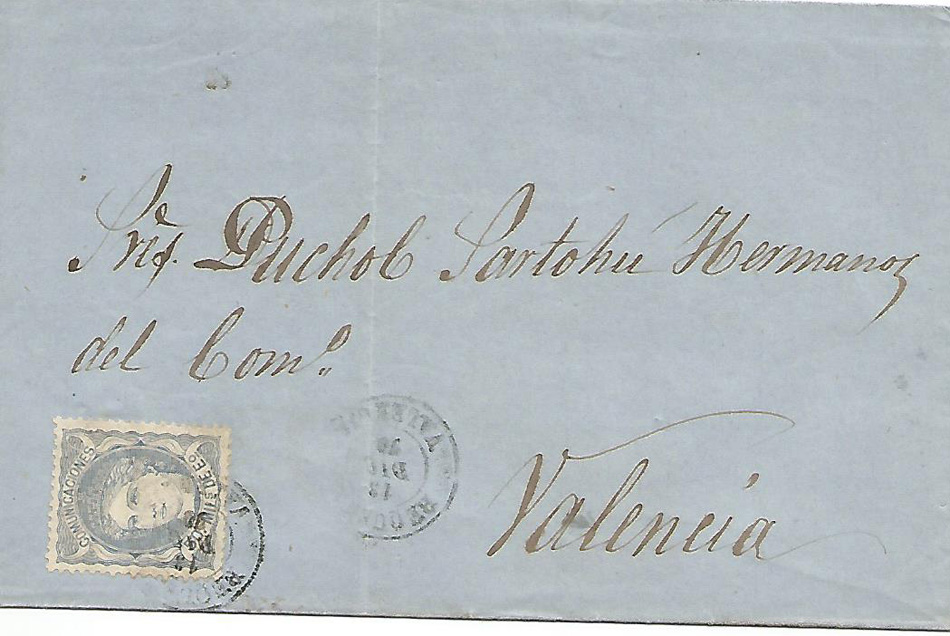 Srēs. Puchol Sartohú Hermanos
del Comº
Valencia
COMUNICACIONES